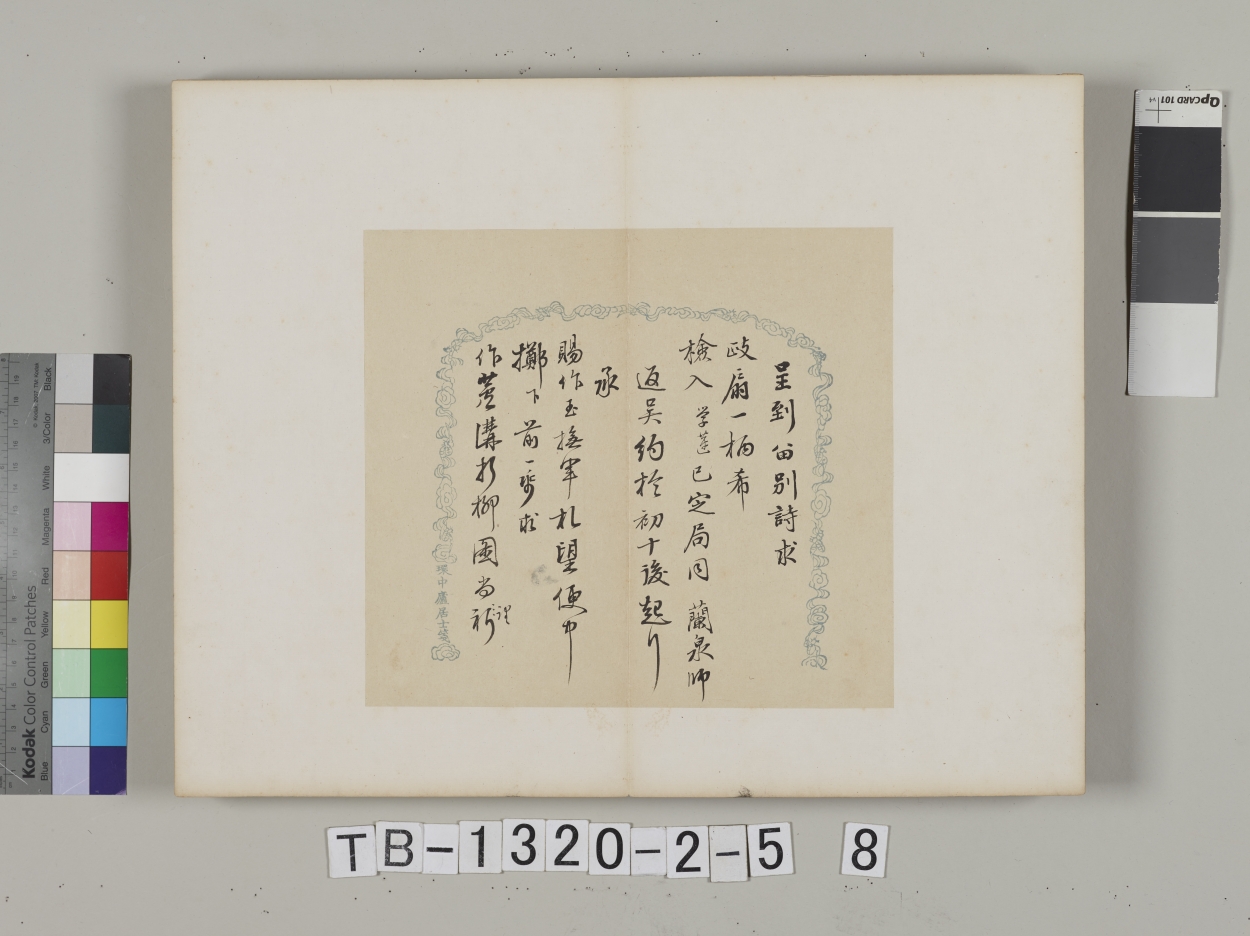 呈到畱別詩求
政扇一柄希
檢入 学蓮已定局同 蘭泉師
返吳約於初十後起行
承
賜作玉撫軍札望便中
擲下前一 求
作蘆溝折柳圖尚祈
中廬居士箋
TB-1320-2-5 8
QPCARD 101 v4
© Kodak
Kodak Color Control Patches
Blue Cyan Green Yellow Red Magenta White 3/Color Black